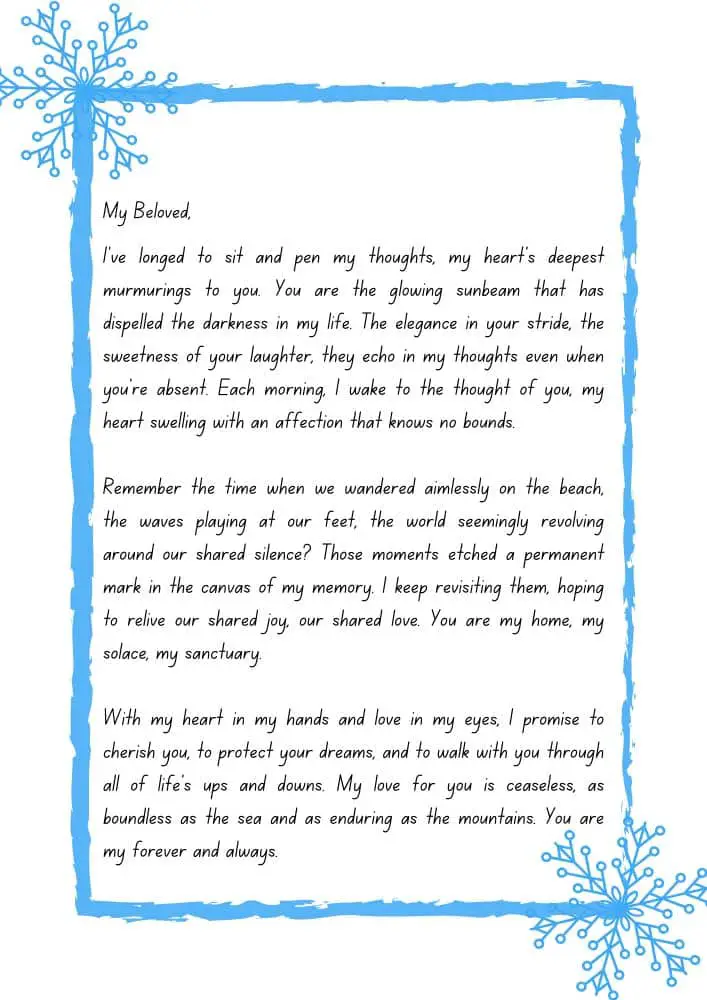 My Beloved,
I've longed to sit and pen my thoughts, my heart's deepest
murmurings to you. You are the glowing sunbeam that has
dispelled the darkness in my life. The elegance in your stride, the
sweetness of your laughter, they echo in my thoughts even when
you're absent. Each morning, I wake to the thought of you, my
heart swelling with an affection that knows no bounds.
Remember the time when we wandered aimlessly on the beach,
the waves playing at our feet, the world seemingly revolving
around our shared silence? Those moments etched a permanent
mark in the canvas of my memory. I keep revisiting them, hoping
to relive our shared joy, our shared love. You are my home, my
solace, my sanctuary.
With my heart in my hands and love in my eyes, I promise to
cherish you, to protect your dreams, and to walk with you through
all of life's ups and downs. My love for you is ceaseless, as
boundless as the sea and as enduring as the mountains. You are
my forever and always.